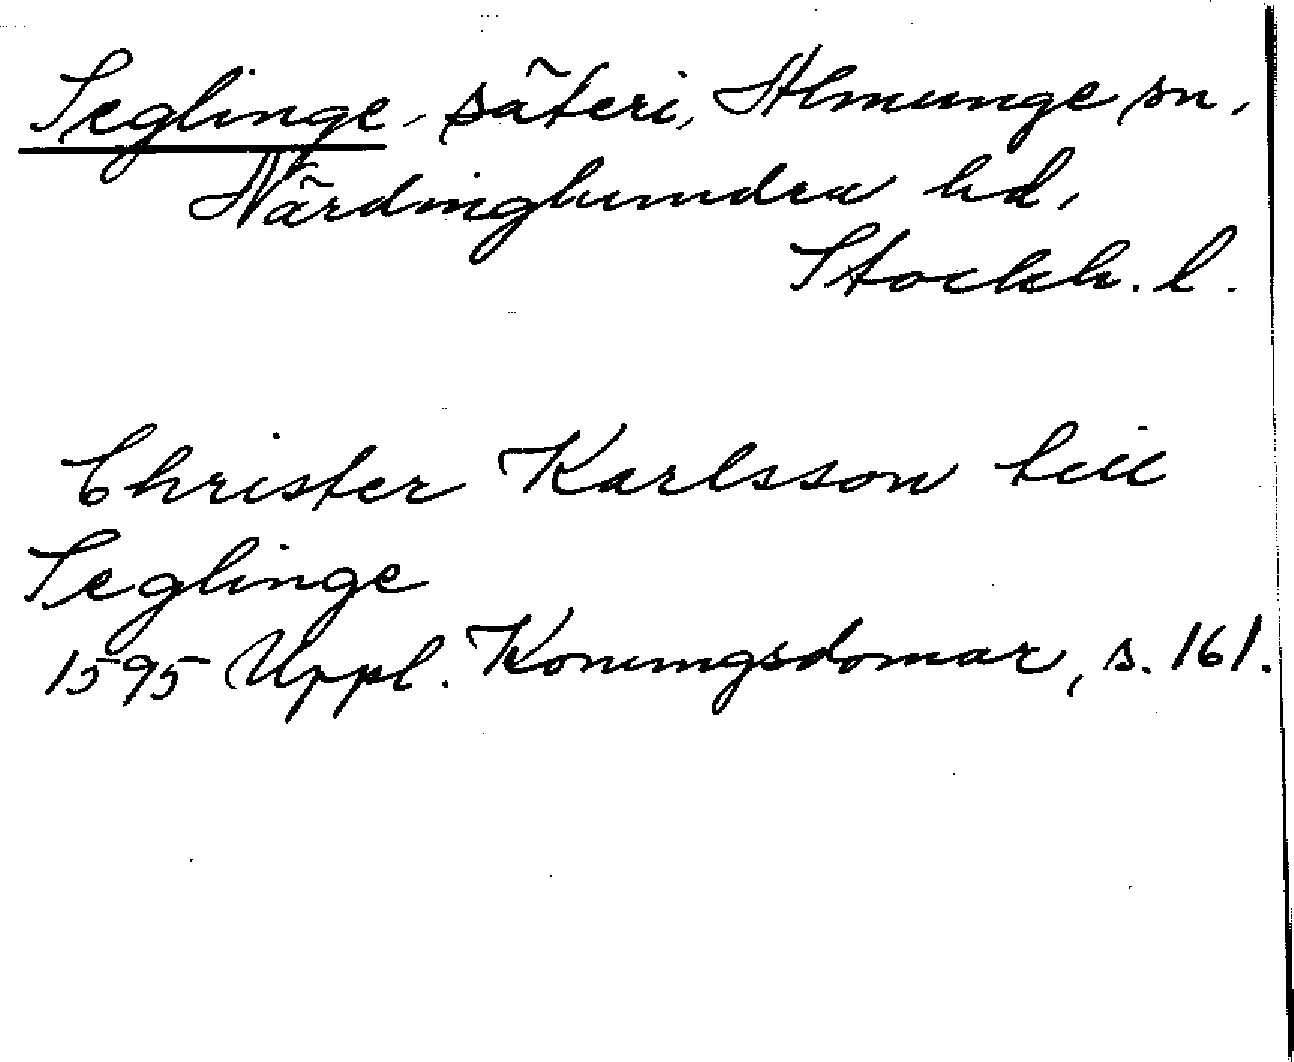 Seglinge, säteri, Almunge sn,
Närdinghundra hd,
Stockh. l.
Christer Karlsson till
Seglinge
1595 Uppl. Konungsdomar, s. 161.